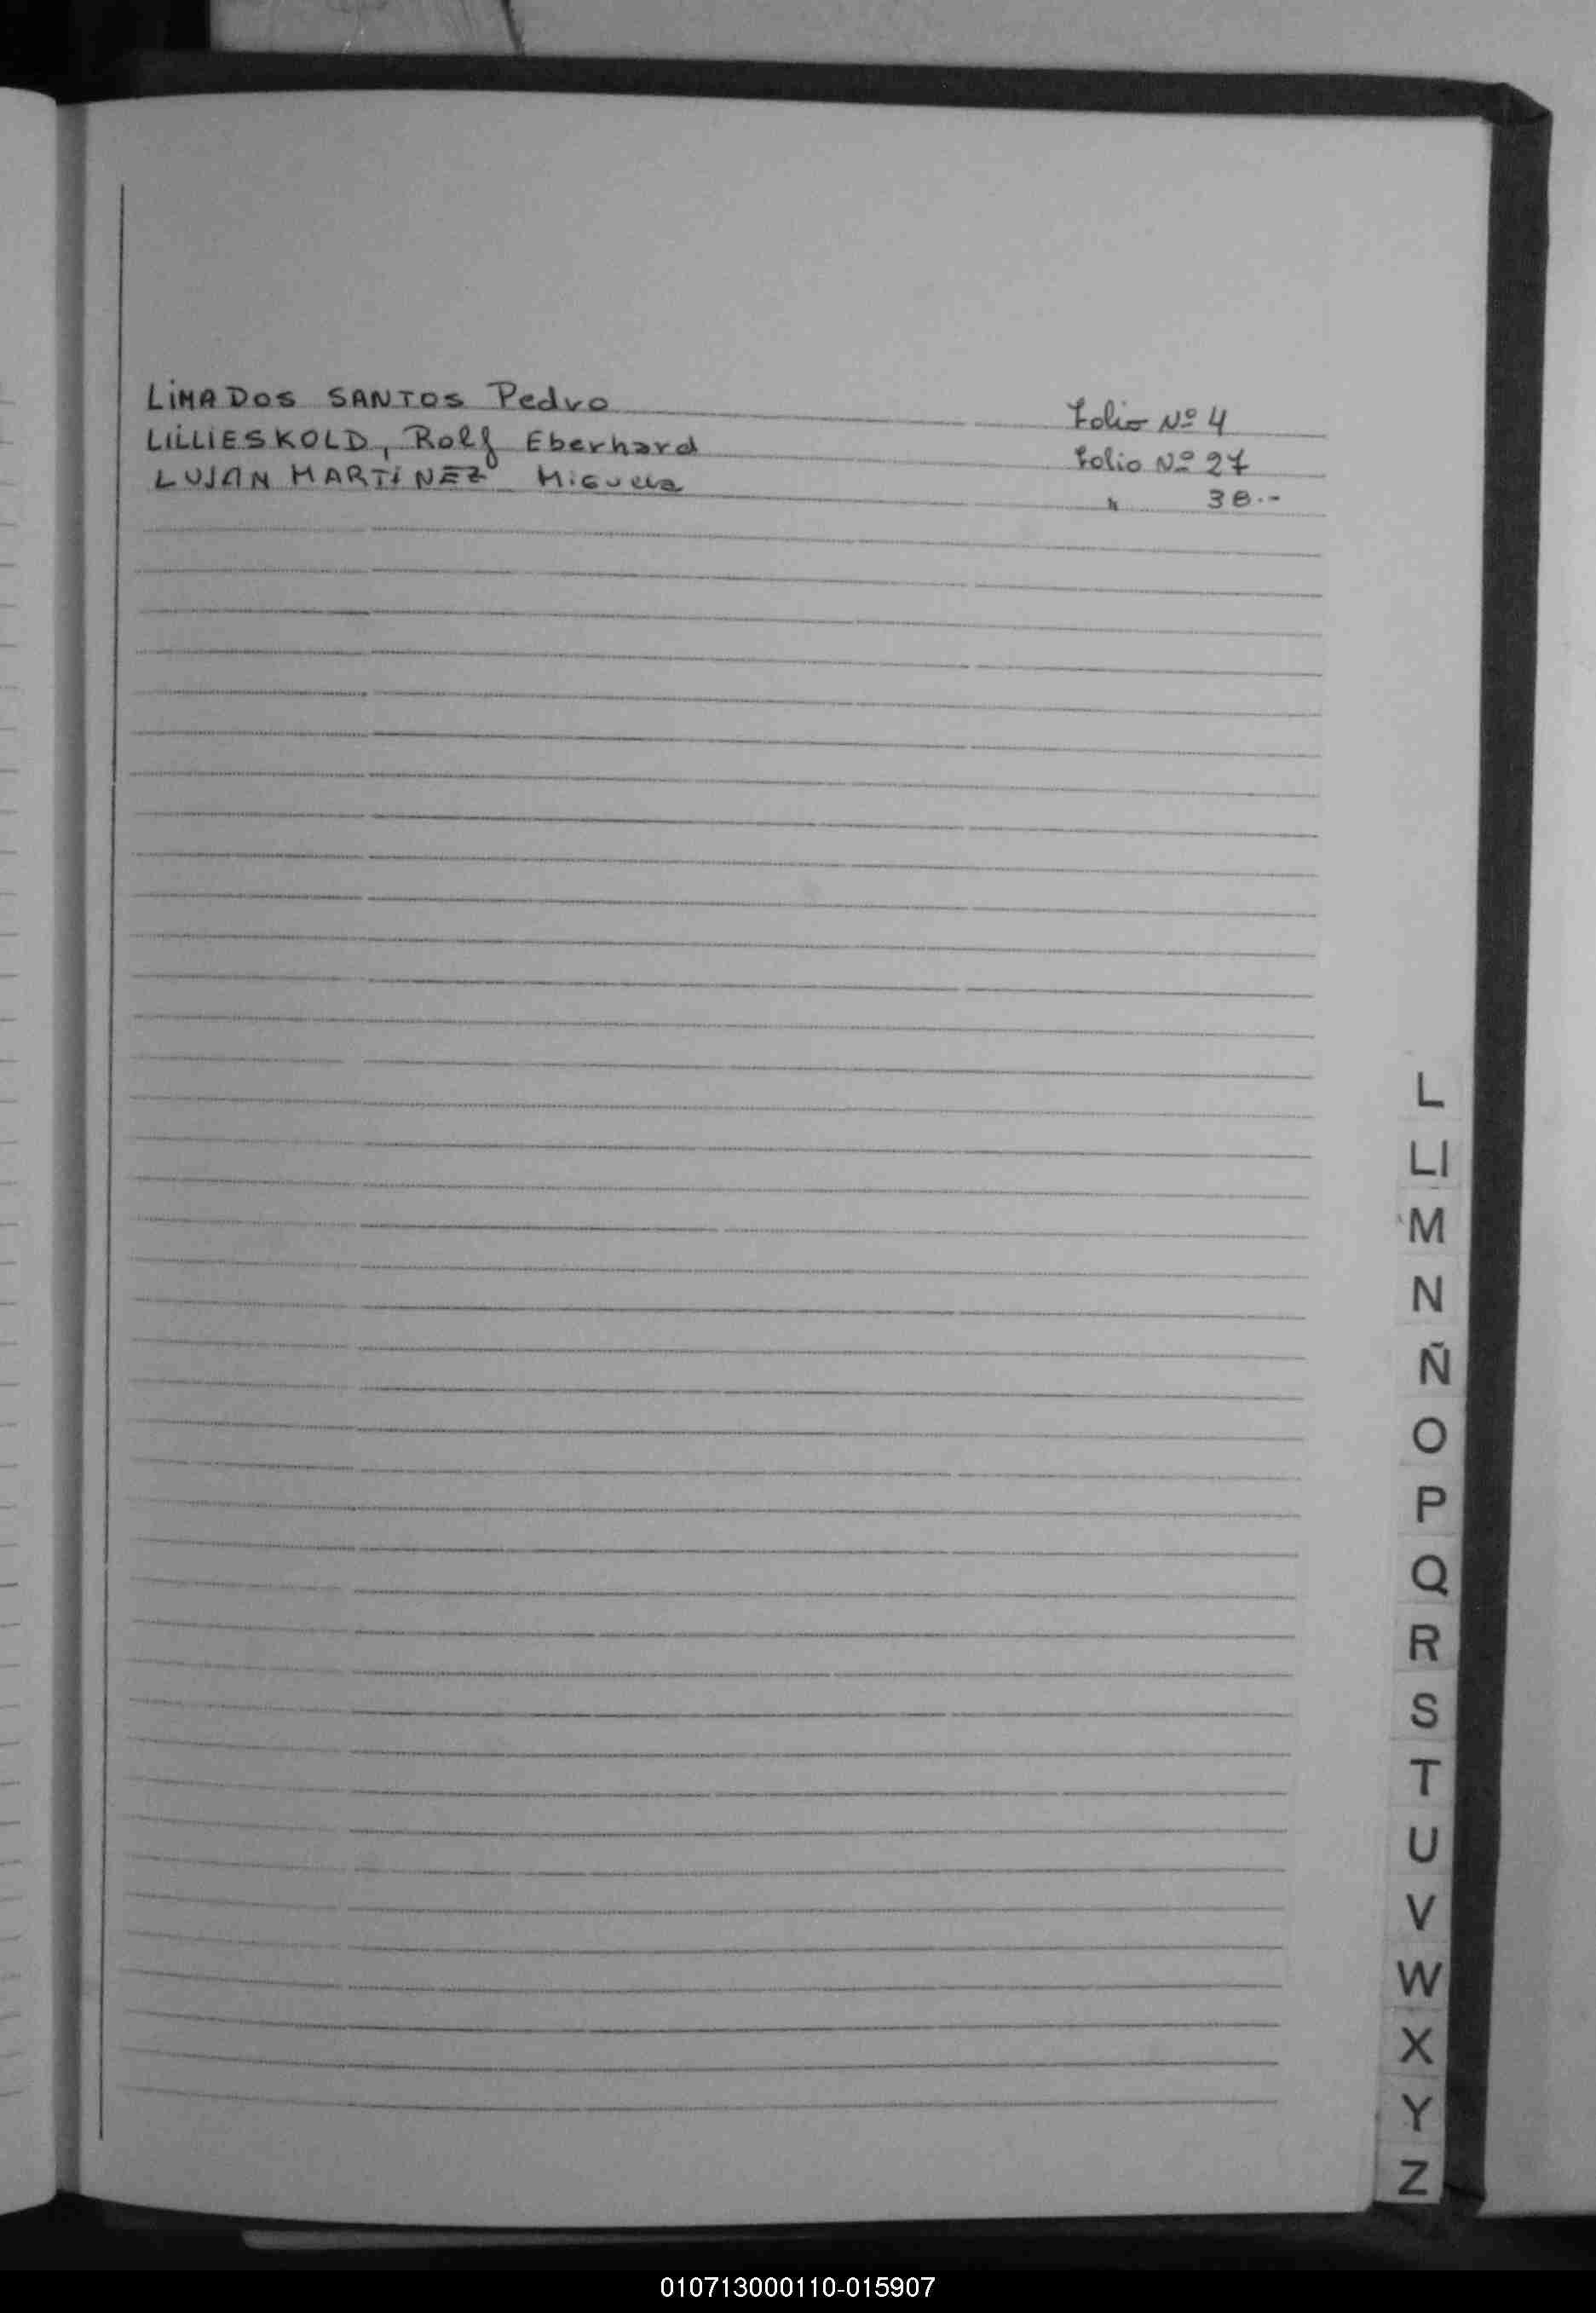 LiMA DOS SANTOS Pedro Folio Nº 4
LILLIESKOLD, Rolf Eberhard Folio Nº 27
LUJAN MARTINEZ Miguela " 38.-
L
Ll
M
N
Ñ
O
P
Q
R
S
T
U
V
W
X
Y
Z
010713000110-015907